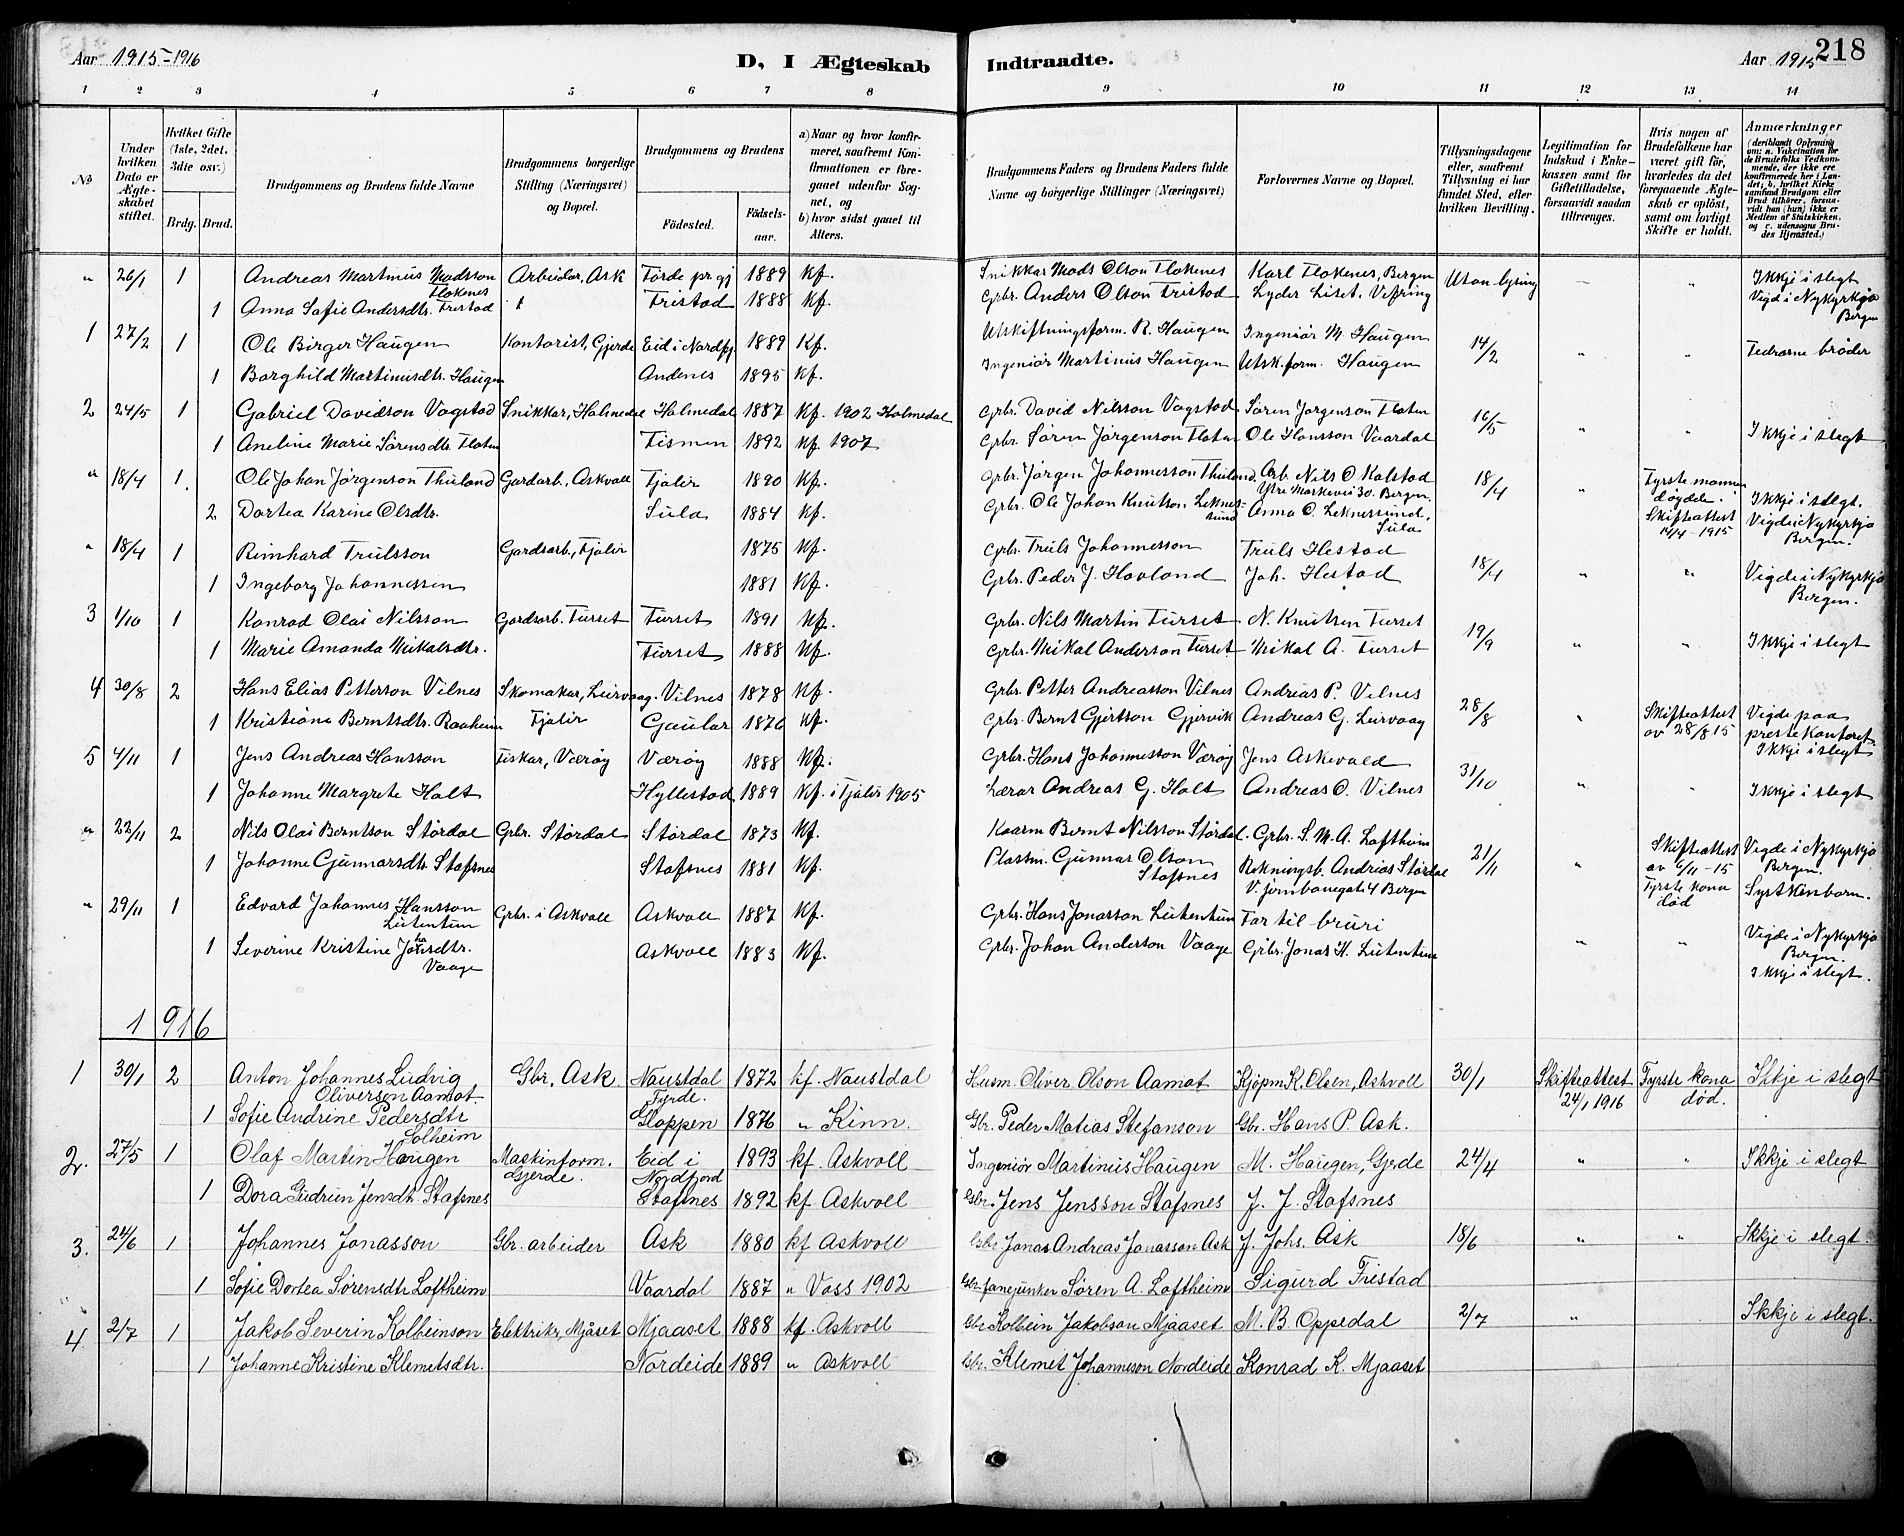 Aar 1915-1916
D, I Ægteskab
Indtraadte.
Aar 1915
218
1 2 3 4 5 6 7 8 9 10 11 12 13 14
No
Under hvilken Dato er Ægteskabet stiftet.
Hvilket Gifte (1ste, 2det, 3die osv.)
Brdg. Brud.
Brudgommens og Brudens fulde Navne
Brudgommens borgerlige Stilling (Næringsvei) og Bopæl.
Brudgommens og Brudens
Fødested. Fødselsaar.
a) Naar og hvor konfirmeret, saafremt Konfirmationen er foregaaet udenfor Sognet, og
b) hvor sidst gaaet til Alters.
Brudgommens Faders og Brudens Faders fulde Navne og borgerlige Stillinger (Næringsvei)
Forlovernes Navne og Bopæl.
Tillysningsdagene eller, saafremt Tillysning ei har fundet Sted, efter hvilken Bevilling.
Legitimation for Indskud i Enkekassen samt for Giftetilladelse, forsaavidt saadan tiltrænges.
Hvis nogen af Brudefolkene har været gift før, hvorledes da det foregaaende Ægteskab er opløst, samt om lovligt Skifte er holdt.
Anmærkninger (deriblandt Oplysning om: a. Vakcination for de Brudefolks Vedkommende, der ikke ere konfirmerede her i Landet; b. hvilket Kirkesamfund Brudgom eller Brud tilhører, forsaavidt han (hun) ikke er Medlem af Statskirken, og c. udensogns Brudes Hjemsted.)
" 26/1 1 Andreas Martinus Madsson Flokenes Arbeidar, Ask Førde pr.gj 1889 Kf. Snikkar Mads Olson Flokenes Karl Flokenes, Bergen Utan lysing - " Ikkje i slegt
1 Anna Sofie Andersdtr. Fristad Fristad 1888 Kf. Grbr. Anders Olson Fristad Lyder Liset, Vefring Vigd i Nykyrkja Bergen
1 27/2 1 Ole Birger Haugen Kontorist, Gjerde Eid i Nordfj. 1889 Kf. Utskiftningsform. R. Haugen Ingeniør M Haugen 14/2 " " Fedrarne brøder
1 Borghild Martinusdtr. Haugen Andenes 1895 Kf. Ingeniør Martinus Haugen Utsk.form. Haugen
2 24/5 1 Gabriel Davidson Vagstad Snikkar, Holmedal Holmedal 1887 Kf. 1902 Holmedal Grbr. David Nilsson Vagstad Søren Jørgenson Floten 16/5 " " Ikkje i slegt
1 Aneline Marie Sørensdtr. Floten Fismen 1892 Kf 1907 Grbr. Søren Jørgenson Floten Ole Hansson Vaardal
" 18/4 1. Ole Johan Jørgenson Thuland Gardarb., Askvoll Fjalir 1890 Kf. Grbr. Jørgen Johannesson Thuland Arb. Nils O Kalstad Ytre Markevei 30. Bergen. 18/4 " Fyrste mannen døydde. Ikkje i slegt.
2 Dortea Karine Olsdtr. Sula 1884 Kf. Grbr. Ole Johan Knutson, Leknessund Anna O. Leknessund, Sula Skifteattest 14/4-1915 Vigde i Nykyrkja Bergen.
" 18/4 1 Reinhard Trulsson Gardsarb., Fjalir 1875 Kf. Grbr. Truls Johannesson Truls Hestad 18/4 " "
1 Ingeborg Johannessen 1881 Kf. Grbr. Peder J. Hovland Joh. Hestad Vigde i Nykyrkja Bergen.
3 1/10 1 Konrad Olai Nilsson Gardsarb. Furset Furset 1891 Kf. Grbr. Nils Martin Furset N. Knutsen Furset 19/9 " "
1 Marie Amanda Mikalsdtr. Furset 1888 Kf. Grbr. Mikal Anderson Furset Mikal A. Furset Ikkje i slegt
4 30/8 2 Hans Elias Petterson Vilnes Skomakar, Leirvaag. Fjalir Vilnes 1878 Kf. Grbr. Petter Andreasson Vilnes Andreas P. Vilnes 28/8 " Skifteattest av 28/8 15 Vigde paa prestekontoret
1 Kristiane Berntsdtr. Raaheim Gaular 1876 Kf. Grbr. Bernt Gjertson Gjervik Andreas G. Leirvaag Ikkje i slegt
5 4/11 1 Jens Andreas Hansson Fiskar, Værøy Værøy 1888 Kf. Grbr. Hans Johannesson Værøy Jens Askevold 31/10 " "
1 Johanne Margrete Holt Hyllestad 1889 Kf. i Fjalir 1905 Lærar Andreas G. Holt Andreas O. Vilnes Ikkje i slegt
" 22/11 2 Nils Olai Berntson Størdal Grbr. Størdal Størdal 1873 Kf. Kaarm Bernt Nilsson Størdal. Grbr. S. M. A. Loftheim 21/11 " Skifteattest av 6/11-15 Vigde i Nykyrkja Bergen.
1 Johanne Gunnarsdtr. Stafsnes Stafsnes 1881 Kf. Plassm. Gunnar Olson Stafsnes Rekningsb. Andreas Størdal V. Jernbanegate 4 Bergen Fyrste kona død Syskenborn.
" 29/11 1 Edvard Johannes Hansson Leitentun Grbr. i Askvoll Askvoll 1887 Kf. Grbr. Hans Jonasson Leitentun Far til bruri " "
1 Severine Kristine Johansdtr. Vaage Askvoll 1883 Kf. Grbr. Johan Anderson Vaage Grbr. Jonas H. Leitentun Vigde i Nykyrkja Bergen. Ikkje i slegt.
1916
1 30/1 2 Anton Johannes Ludvig Oliverson Aamot. Gbr. Ask. Naustdal Fyrde. 1872 kf. Naustdal Husm. Oliver Olson Aamot Kjøpm K. Olsen, Askvoll 30/1 Skifteattest 24/1 1916 Fyrste kona død. Ikkje i slegt
1 Sofie Andrine Pedersdtr Solheim Gloppen 1876 " Kinn. Gbr. Peder Matias Stefanson Gbr. Hans P. Ask.
2. 27/5 1 Olaf Martin Haugen Maskinform. Gjerde. Eid i Nordfjord 1893 kf. Askvoll Ingeniør Martinus Haugen M. Haugen, Gjerde 24/4 " " Ikkje i slegt
1 Dora Gudrun Jensdtr. Stafsnes Stafsnes 1892 kf Askvoll Gbr. Jens Jensson Stafsnes J. J. Stafsnes
3. 24/6 1 Johannes Jonasson Gbr. arbeider Ask 1880 kf Askvoll Gbr Jonas Andreas Jonasson Ask J. Johs. Ask 18/6 " " Ikkje i slegt.
1 Sofie Dortea Sørensdtr Loftheim Vaardal 1887 " Voss 1902 Gbr. fanejunker Søren A. Loftheim Sigurd Fristad
4. 2/7 1 Jakob Severin Kolbeinson Elektrikr, Mjåset Mjaaset 1888 kf. Askvoll Gbr Kolbein Jakobson Mjaaset M. B. Oppedal 2/7 " Ikkje i slegt.
1 Johanne Kristine Klemetsdtr. Nordeide 1889 " Askvoll Gbr. Klemet Johanneson Nordeide Konrad K. Mjaaset